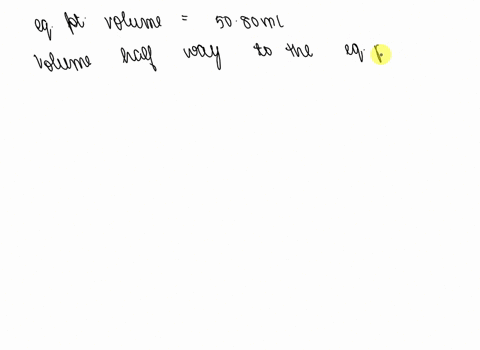 eq. pt. volume = 50.80ml
Volume half way to the eq. p